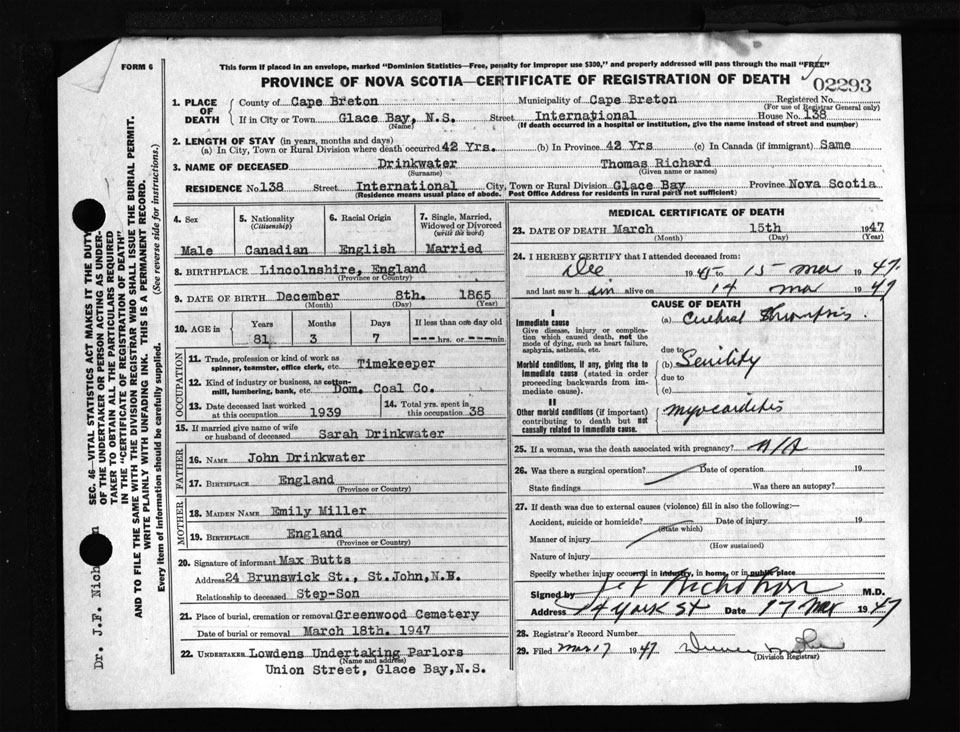 FORM 6
This form if placed in an envelope, marked "Dominion Statistics—Free, penalty for improper use $300," and properly addressed will pass through the mail "FREE"
PROVINCE OF NOVA SCOTIA—CERTIFICATE OF REGISTRATION OF DEATH
02293
1. PLACE OF DEATH
County of Cape Breton Municipality of Cape Breton Registered No.
(For use of Registrar General only)
If in City or Town Glace Bay, N.S. Street International House No. 138
(Name) (If death occurred in a hospital or institution, give the name instead of street and number)
2. LENGTH OF STAY (in years, months and days)
(a) In City, Town or Rural Division where death occurred 42 Yrs. (b) In Province 42 Yrs (c) In Canada (if immigrant) Same
3. NAME OF DECEASED Drinkwater Thomas Richard
(Surname) (Given name or names)
RESIDENCE No 138 Street International City, Town or Rural Division Glace Bay Province Nova Scotia
(Residence means usual place of abode. Post Office Address for residents in rural parts not sufficient)
4. Sex
Male
5. Nationality
(Citizenship)
Canadian
6. Racial Origin
English
7. Single, Married, Widowed or Divorced
(write the word)
Married
8. BIRTHPLACE Lincolnshire, England
(Province or Country)
9. DATE OF BIRTH December 8th. 1865
(Month) (Day) (Year)
10. AGE in Years Months Days If less than one day old
81 3 7 --- hrs. or --- min.
OCCUPATION
11. Trade, profession or kind of work as
spinner, teamster, office clerk, etc. Timekeeper
12. Kind of industry or business, as cotton-
mill, lumbering, bank, etc. Dom. Coal Co.
13. Date deceased last worked
at this occupation 1939
14. Total yrs. spent in
this occupation 38
15. If married give name of wife
or husband of deceased Sarah Drinkwater
FATHER
16. Name John Drinkwater
17. Birthplace England
(Province or Country)
MOTHER
18. Maiden Name Emily Miller
19. Birthplace England
(Province or Country)
20. Signature of informant Max Butts
Address 24 Brunswick St., St.John, N.B.
Relationship to deceased Step-Son
21. Place of burial, cremation or removal Greenwood Cemetery
Date of burial or removal March 18th. 1947
22. UNDERTAKER Lowdens Undertaking Parlors
(Name and address)
Union Street, Glace Bay, N.S.
MEDICAL CERTIFICATE OF DEATH
23. DATE OF DEATH March 15th 1947
(Month) (Day) (Year)
24. I HEREBY CERTIFY that I attended deceased from:
Dec 19 to 15 Mar 1947
and last saw him alive on 14 Mar 1947
CAUSE OF DEATH
I
Immediate cause
Give disease, injury or complica-
tion which caused death, not the
mode of dying, such as heart failure,
asphyxia, asthenia, etc.
(a) Cerebral Thrombosis.
due to
Morbid conditions, if any, giving rise to
immediate cause (stated in order
proceeding backwards from im-
mediate cause).
(b) Senility
due to
(c)
II
Other morbid conditions (if important)
contributing to death but not
causally related to immediate cause.
Myocarditis
25. If a woman, was the death associated with pregnancy? N/A
26. Was there a surgical operation? Date of operation 19
State findings Was there an autopsy?
27. If death was due to external causes (violence) fill in also the following:—
Accident, suicide or homicide? Date of injury 19
(State which)
Manner of injury
(How sustained)
Nature of injury
Specify whether injury occurred in industry, in home, or in public place
Signed by J F Nicholson M.D.
Address York St Date 17 Mar 1947
28. Registrar's Record Number
29. Filed Mar 17 1947
(Division Registrar)
SEC. 46—VITAL STATISTICS ACT MAKES IT THE DUTY
OF THE UNDERTAKER OR PERSON ACTING AS UNDER-
TAKER TO OBTAIN ALL THE PARTICULARS REQUIRED
IN THE "CERTIFICATE OF REGISTRATION OF DEATH"
AND TO FILE THE SAME WITH THE DIVISION REGISTRAR WHO SHALL ISSUE THE BURIAL PERMIT.
WRITE PLAINLY WITH UNFADING INK. THIS IS A PERMANENT RECORD.
Every item of information should be carefully supplied. (See reverse side for instructions.)
Dr. J.F. Nich n